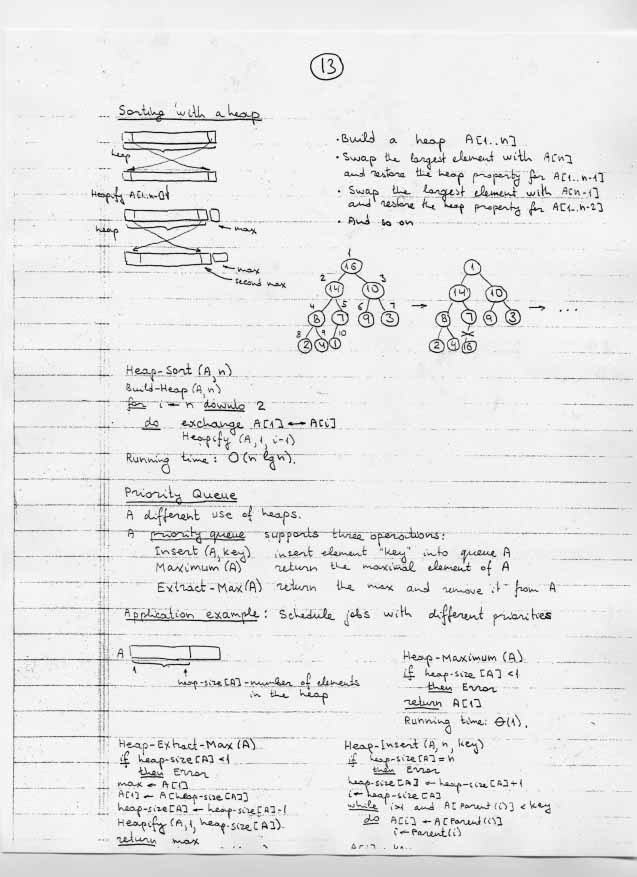 13
Sorting with a heap
heap
Heapify A[1..n-1]
heap
max
max
second max
· Build a heap A[1..n]
· Swap the largest element with A[n]
and restore the heap property for A[1..n-1]
· Swap the largest element with A[n-1]
and restore the heap property for A[1..n-2]
· And so on
1
16
2 3
14 10
4 5 6 7
8 7 9 3
8 9 10
2 4 1
→
1
14 10
8 7 9 3
2 4 16
→ ...
Heap-Sort (A, n)
Build-Heap (A, n)
for i ← n downto 2
do exchange A[1] ↔ A[i]
Heapify (A, 1, i-1)
Running time: O(n lg n).
Priority Queue
A different use of heaps.
A priority queue supports three operations:
Insert (A, key) insert element "key" into queue A
Maximum (A) return the maximal element of A
Extract-Max(A) return the max and remove it from A
Application example: Schedule jobs with different priorities
A
1
heap-size[A] - number of elements
in the heap
Heap-Maximum (A)
if heap-size [A] < 1
then Error
return A[1]
Running time: Θ(1).
Heap-Extract-Max (A)
if heap-size [A] < 1
then Error
max ← A[1]
A[1] ← A[heap-size[A]]
heap-size[A] ← heap-size[A]-1
Heapify (A, 1, heap-size[A])
return max
Heap-Insert (A, n, key)
if heap-size[A] = n
then Error
heap-size[A] ← heap-size[A]+1
i ← heap-size[A]
while i>1 and A[Parent(i)] < key
do A[i] ← A[Parent(i)]
i ← Parent(i)